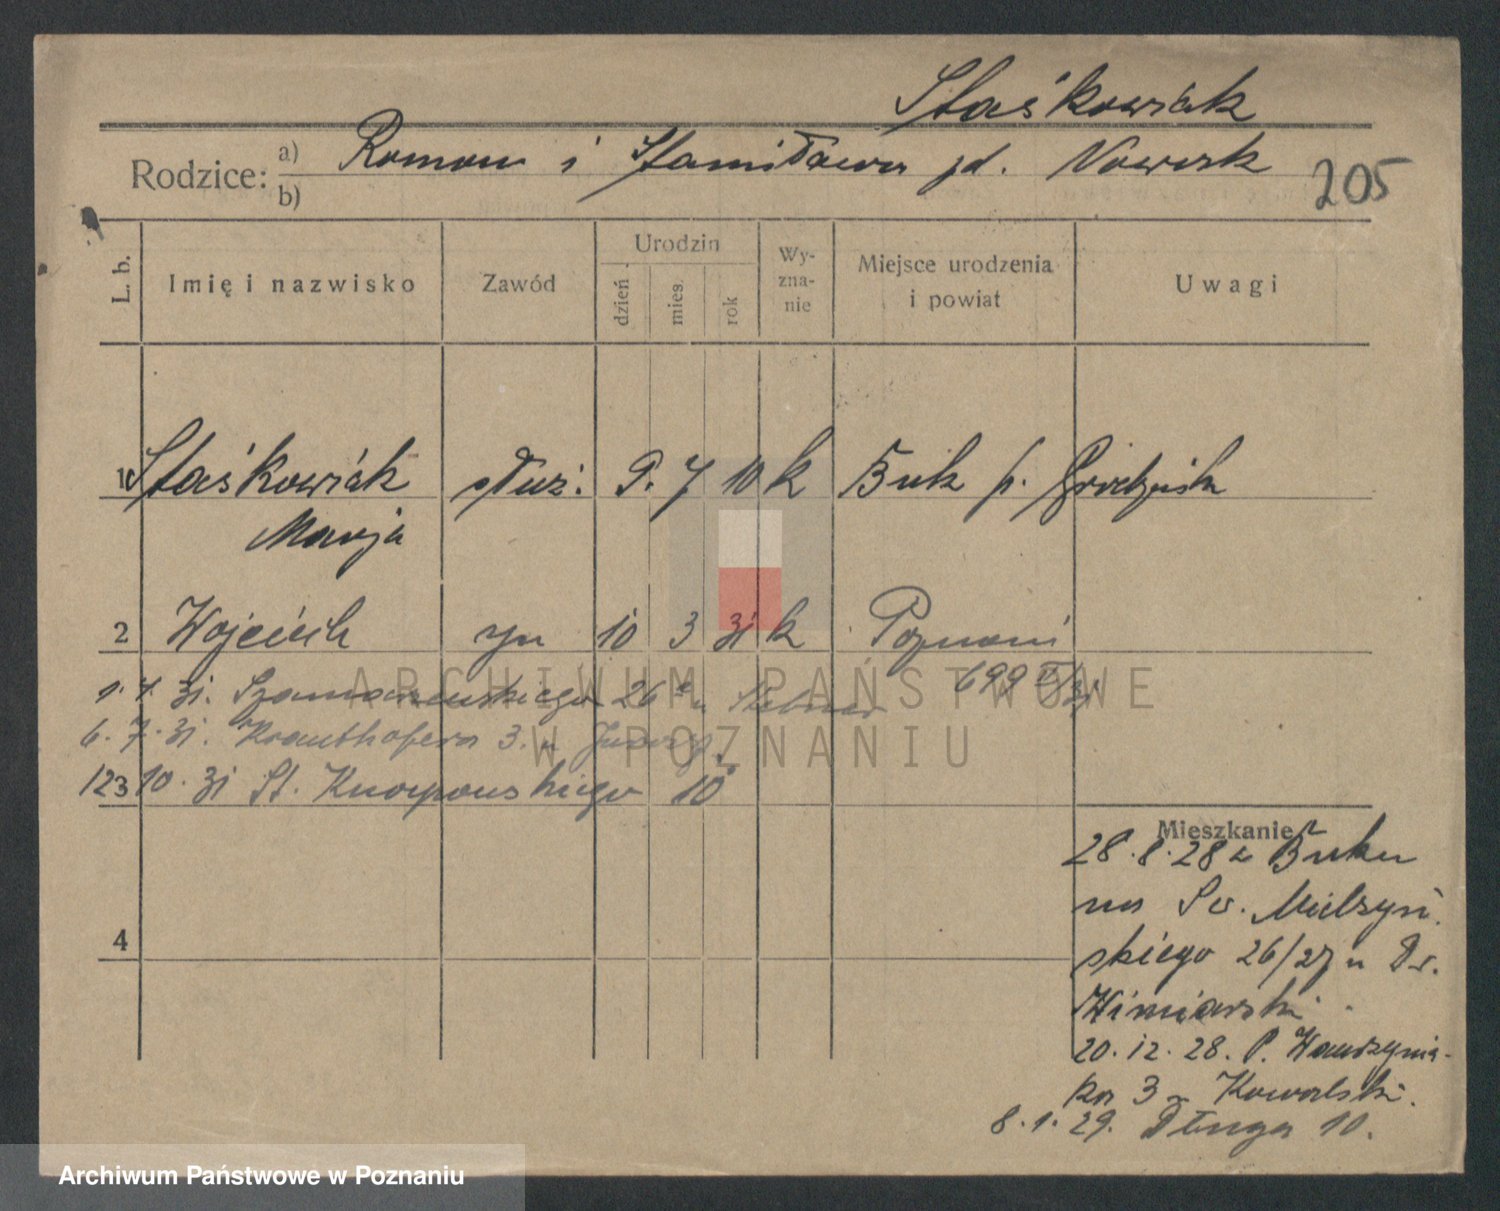 Staśkowiak
Rodzice: a) Roman i Stanisława zd. Nowak
b)
205
L. b. Imię i nazwisko Zawód Urodzin dzień mies. rok Wy-zna-nie Miejsce urodzenia i powiat Uwagi
1 Staśkowiak służ. 9. 7 10 k Buk p. Grodzisk
Marja
2 Wojciech syn 10 3 31 k Poznań
699
1. 4. 31. Szamarzewskiego 26a u
6. 7. 31. Krauthofera 3. u
12 10. 31 St. Knapowskiego 10
3
Mieszkanie
28.8.28 z Buku
na Sew. Mielżyń
skiego 26/27 u Dr.
Winiarski
20. 12. 28. P. Wawrzynia-
ka 3 u Kowalski.
8. 1. 29. Długa 10.
4
ARCHIWUM PAŃSTWOWE
W POZNANIU
Archiwum Państwowe w Poznaniu